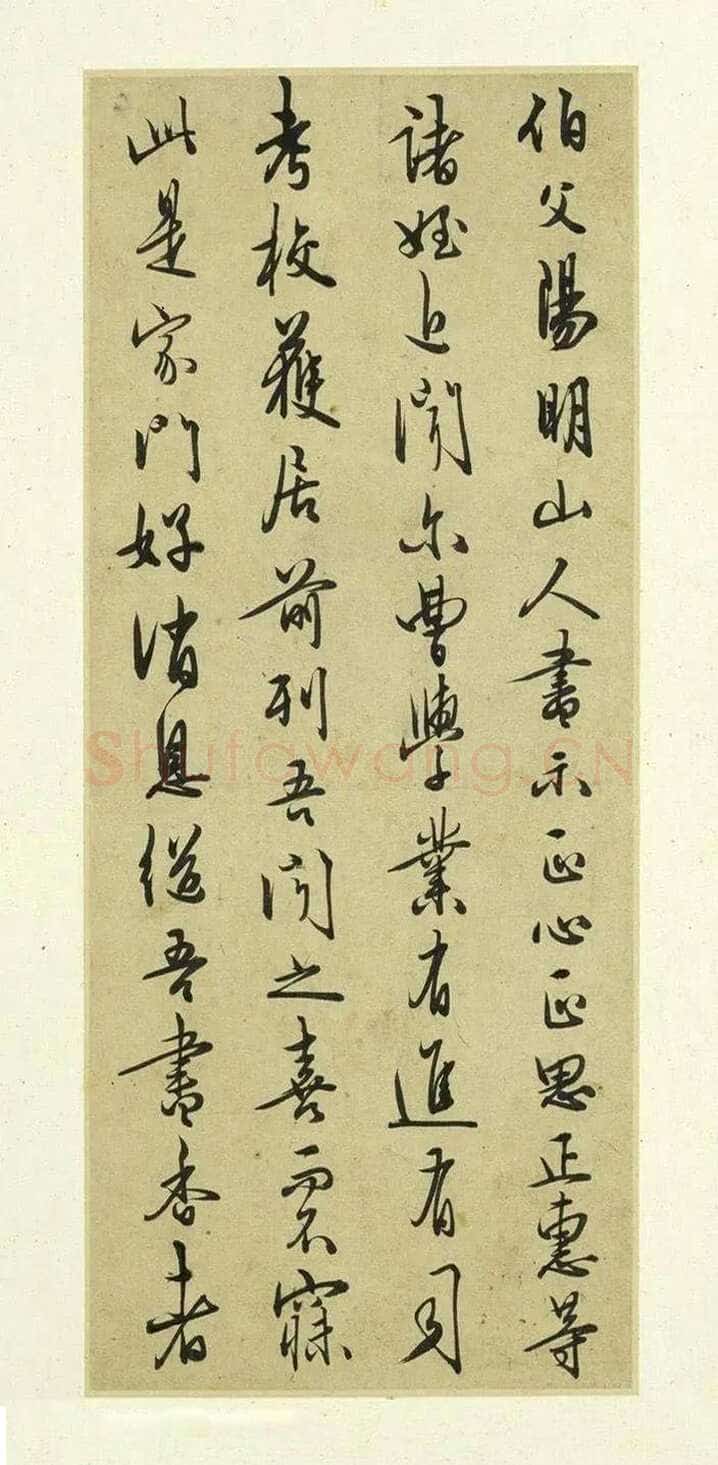 伯父陽明山人書示正心正思正惠等
諸姪近聞尔曹學業有進有司
考校獲居前列吾聞之喜而不寐
此是家門好消息繼吾書香者
Shufawang.CN